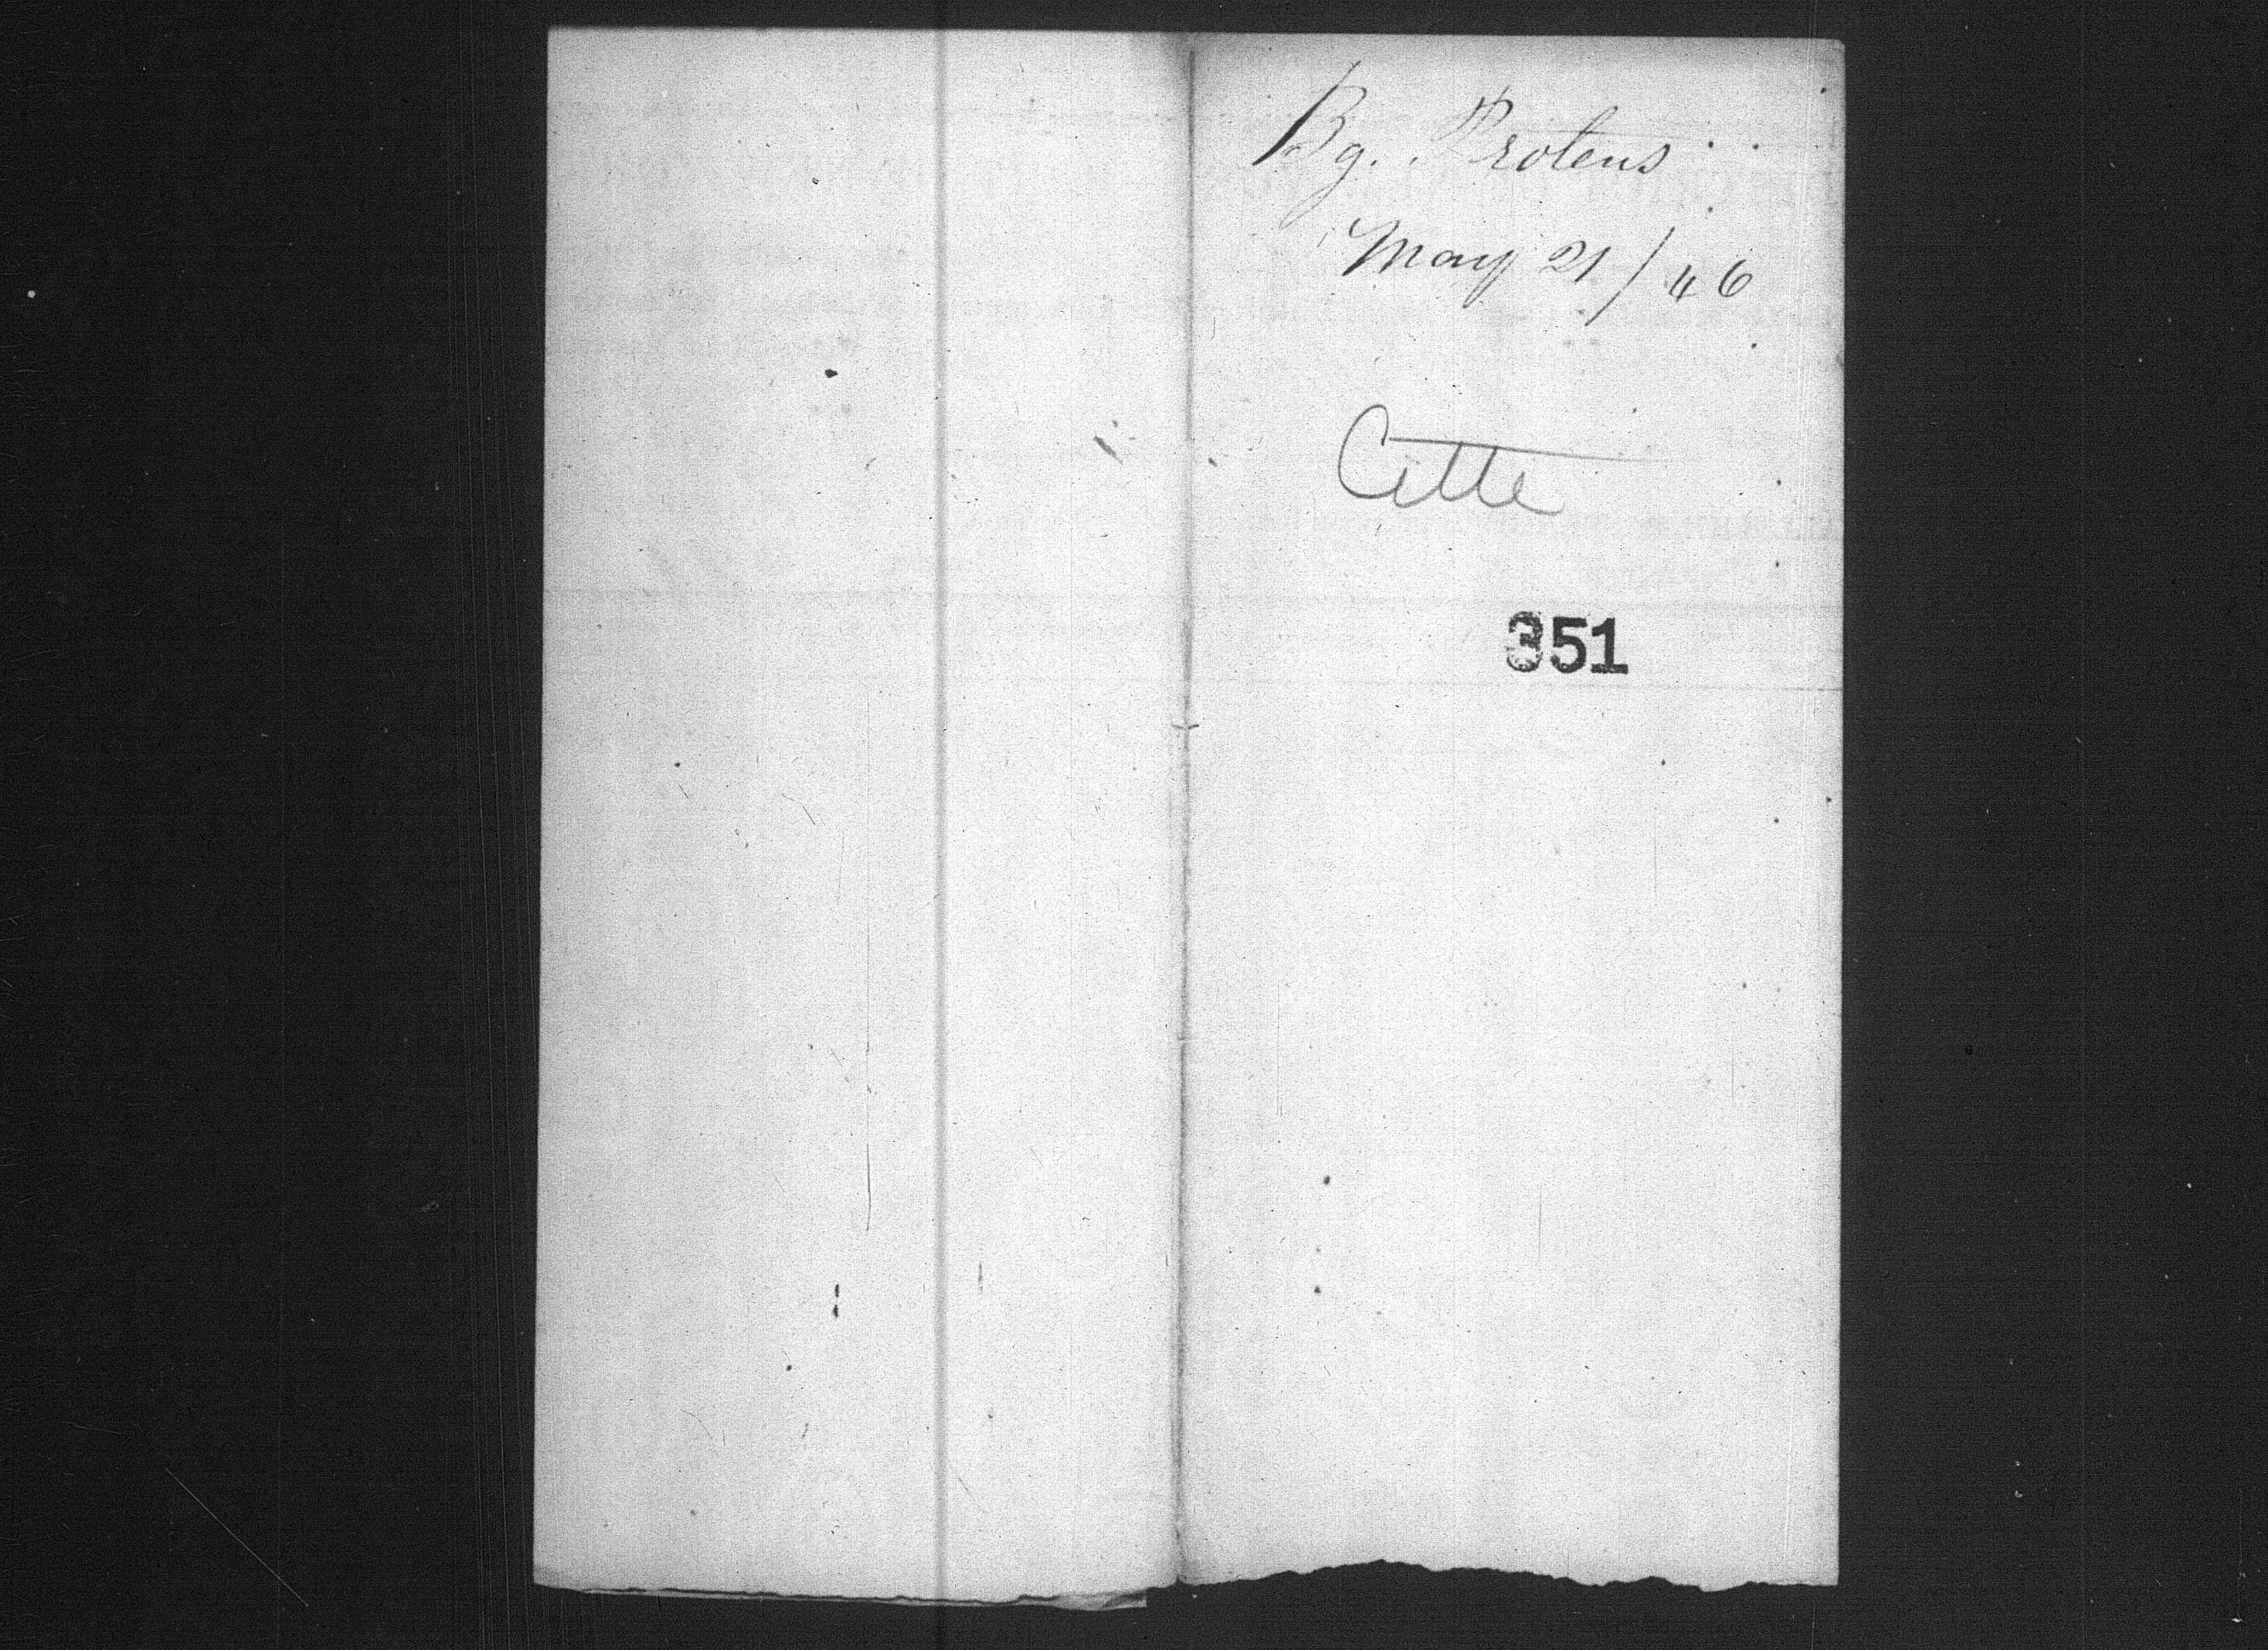 Bg. Proteus
May 21/46
Cette
351